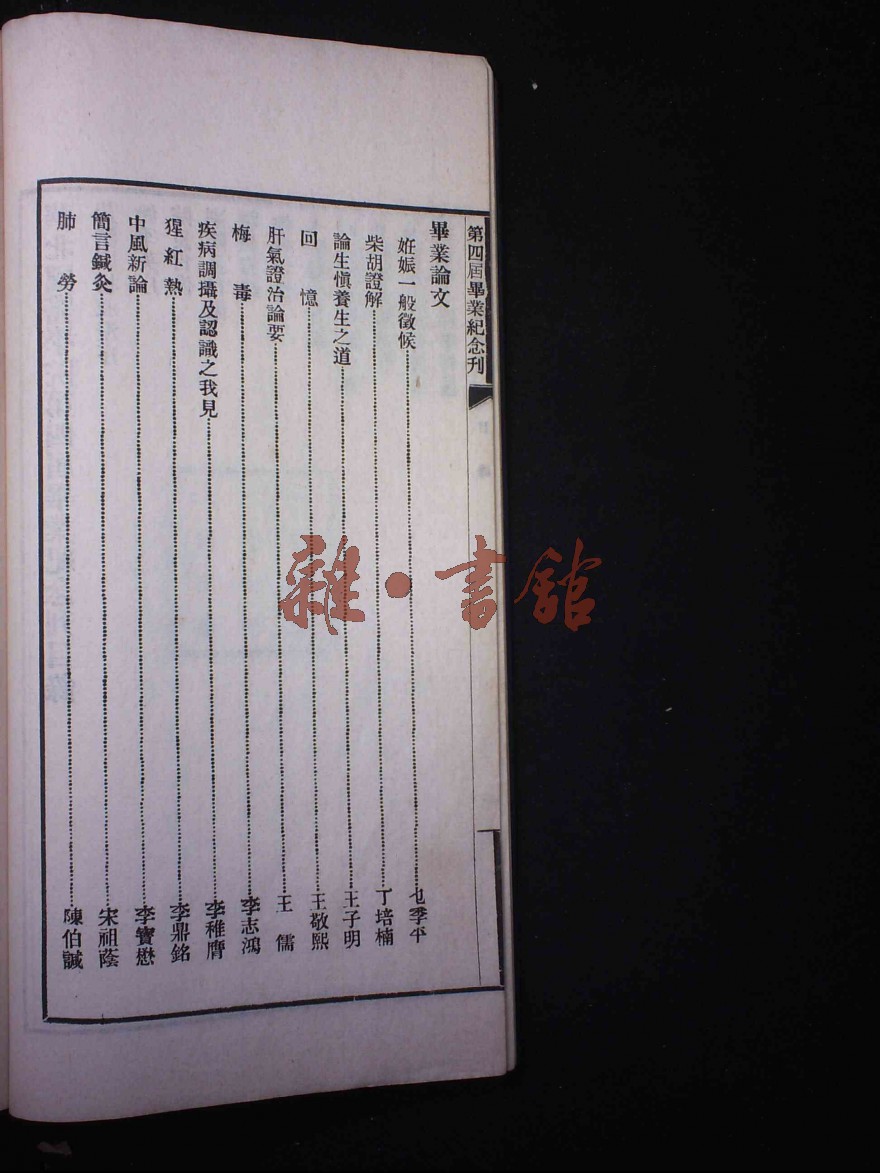 第四屆畢業紀念刊
畢業論文
妊娠一般徵候……乜季平
柴胡證解……丁培楠
論生愼養生之道……王子明
回憶……王敬熙
肝氣證治論要……王儒
梅毒……李志鴻
疾病調攝及認識之我見……李稚膺
猩紅熱……李鼎銘
中風新論……李寶懋
簡言鍼灸……宋祖蔭
肺勞……陳伯誠
雜·書館